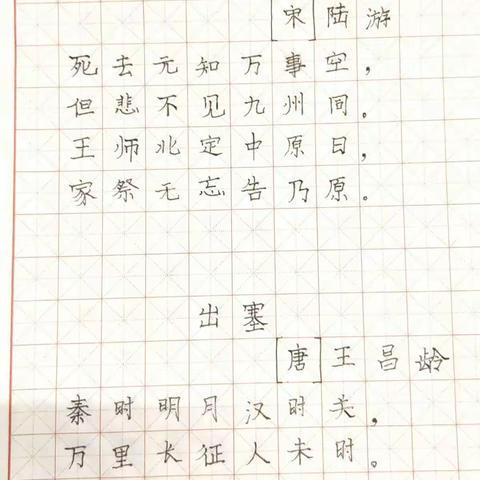 [宋]陆游
死去元知万事空，
但悲不见九州同。
王师北定中原日，
家祭无忘告乃原。
出塞
[唐]王昌龄
秦时明月汉时关，
万里长征人未时。